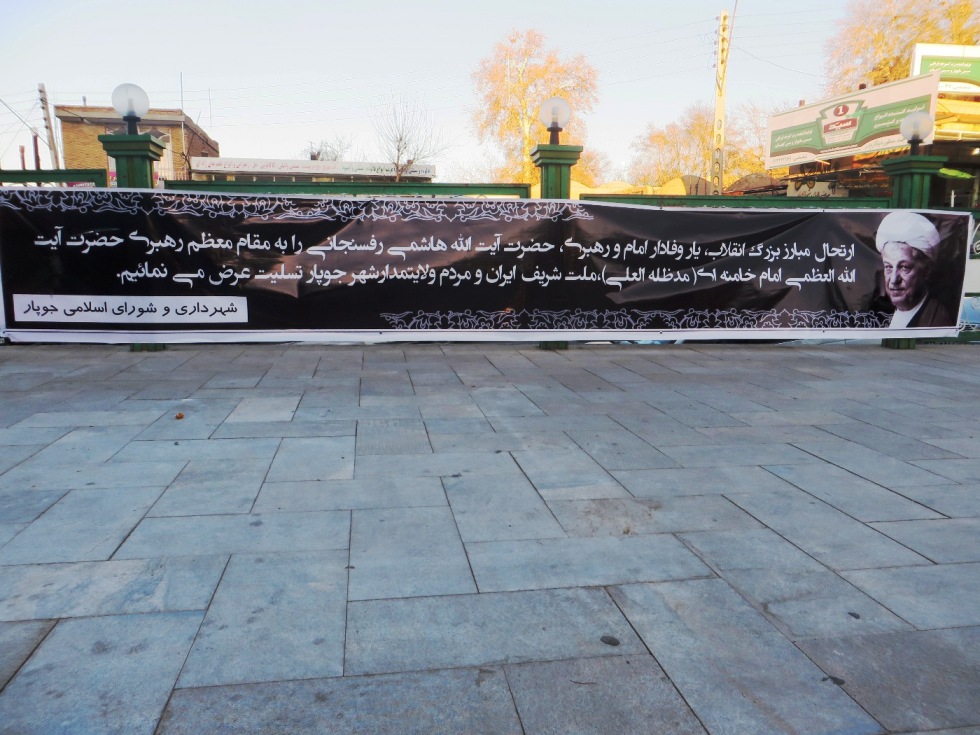 ارتحال مبارز بزرگ انقلاب، یار وفادار امام و رهبری، حضرت آیت الله هاشمی رفسنجانی را به مقام معظم رهبری حضرت آیت
الله العظمی امام خامنه ای( مدظله العلی)،ملت شریف ایران و مردم ولایتمدارشهر جوپار تسلیت عرض می نمائیم.
شهرداری و شورای اسلامی جوپار